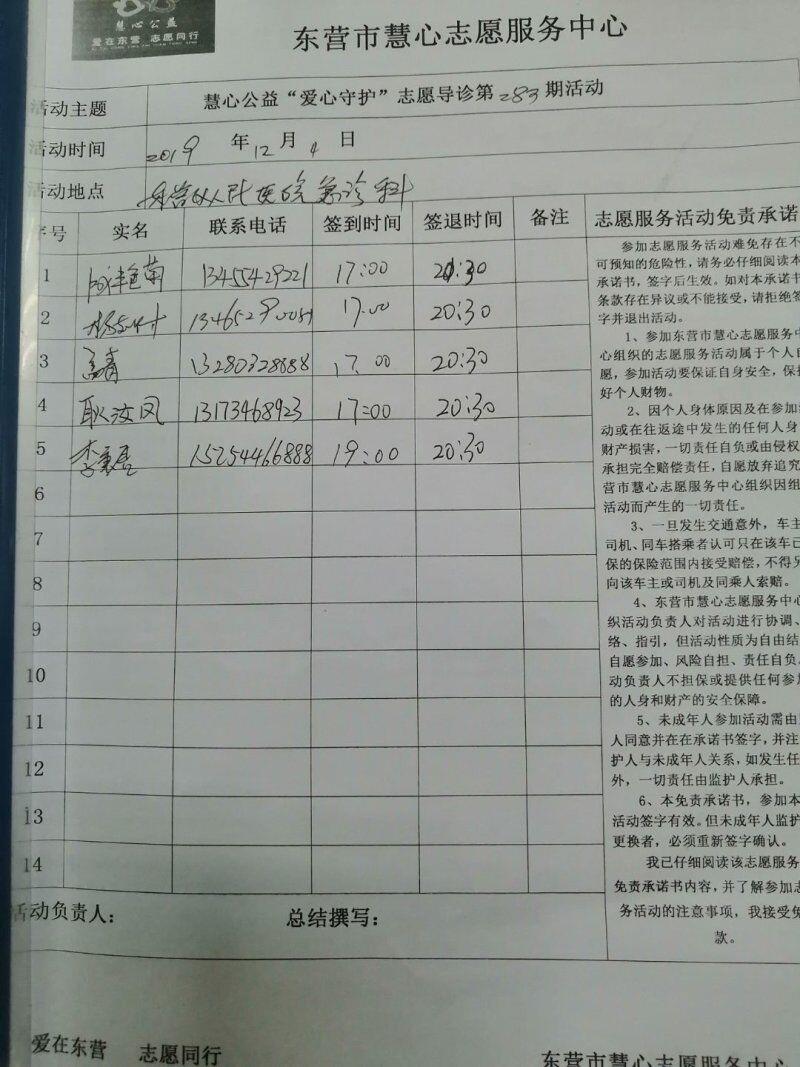 慧心公益
爱在东营 志愿同行
东营市慧心志愿服务中心
活动主题 慧心公益“爱心守护”志愿导诊第283期活动
活动时间 2019 年 12 月 4 日
活动地点 东营人民医院急诊科
序号 实名 联系电话 签到时间 签退时间 备注 志愿服务活动免责承诺
1 13455429221 17:00 20:30
2 17:00 20:30
3 孟青 13280328688 17:00 20:30
4 耿汝凤 13173468923 17:00 20:30
5 15254466888 19:00 20:30
6
7
8
9
10
11
12
13
14
参加志愿服务活动难免存在不
可预知的危险性，请务必仔细阅读本
承诺书，签字后生效。如对本承诺书
条款存在异议或不能接受，请拒绝签
字并退出活动。
1、参加东营市慧心志愿服务中
心组织的志愿服务活动属于个人自
愿，参加活动要保证自身安全，保护
好个人财物。
2、因个人身体原因及在参加活
动或在往返途中发生的任何人身
财产损害，一切责任自负或由侵权
承担完全赔偿责任，自愿放弃追究
营市慧心志愿服务中心组织因组
活动而产生的一切责任。
3、一旦发生交通意外，车主
司机、同车搭乘者认可只在该车已
保的保险范围内接受赔偿，不得另
向该车主或司机及同乘人索赔。
4、东营市慧心志愿服务中心
织活动负责人对活动进行协调、
络、指引，但活动性质为自由结
自愿参加、风险自担、责任自负。
动负责人不担保或提供任何参加
的人身和财产的安全保障。
5、未成年人参加活动需由
人同意并在在承诺书签字，并注
护人与未成年人关系，如发生任
外，一切责任由监护人承担。
6、本免责承诺书，参加本
活动签字有效。但未成年人监护
更换者，必须重新签字确认。
我已仔细阅读该志愿服务
免责承诺书内容，并了解参加志
务活动的注意事项，我接受免
款。
活动负责人： 总结撰写：
爱在东营 志愿同行
东营市慧心志愿服务中心